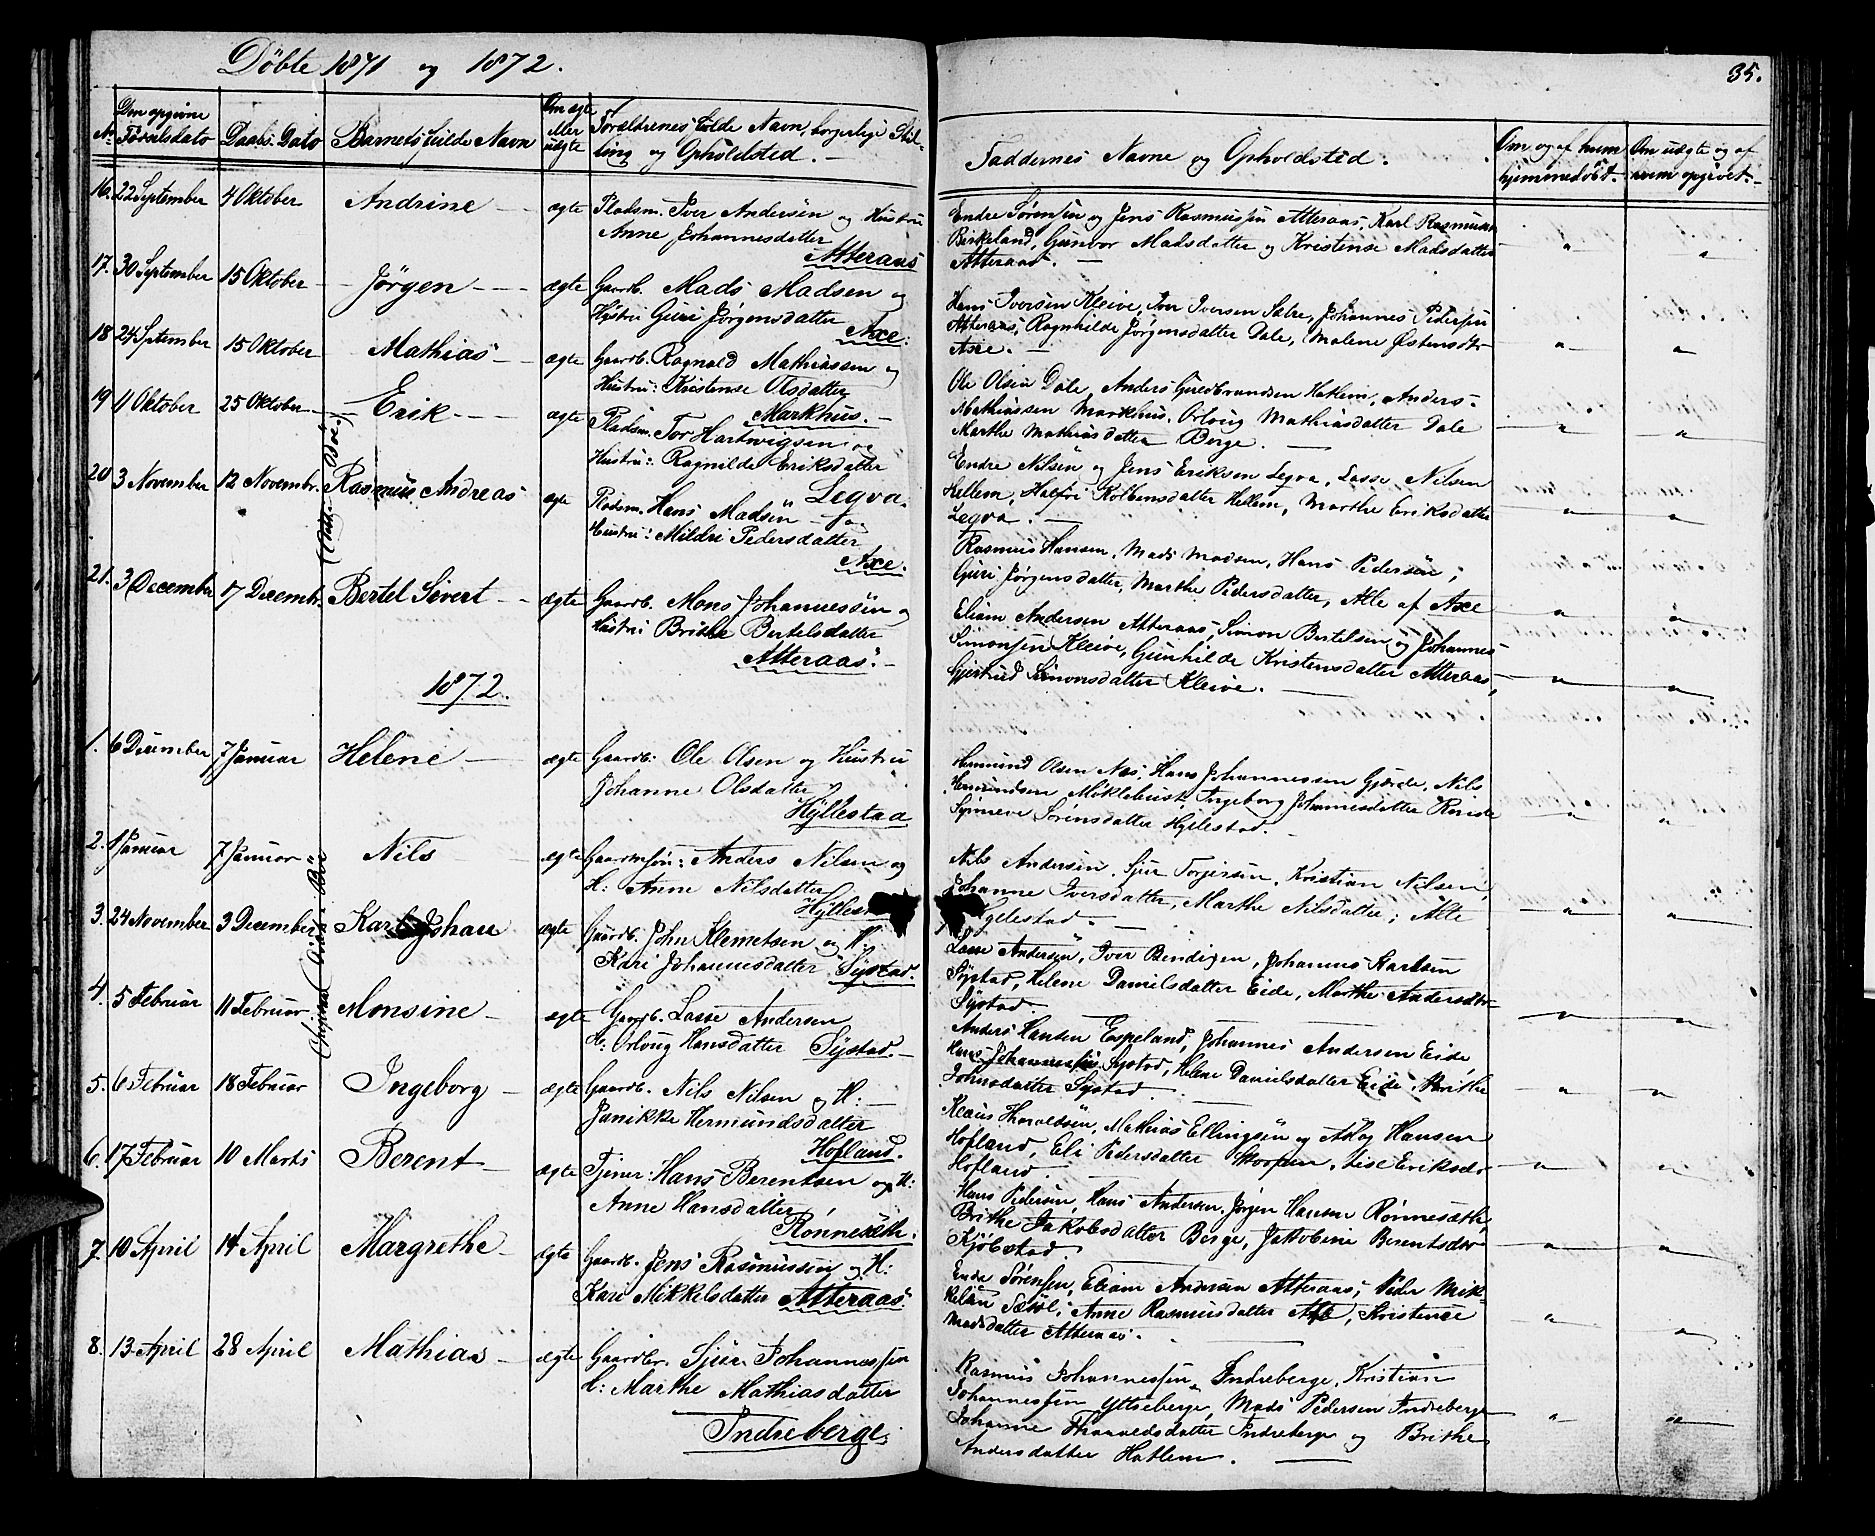 Döbte 1871 og 1872.
35.
No
Den opgivne Födselsdato
Daabs-Dato
Barnets fulde Navn
Om ægte eller uægte
Forældrenes fulde Navn, borgerlige Stilling og Opholdsted.
Faddernes Navne og Opholdsted.
Om og af hvem hjemmedöbt.
Om uægte og af hvem opgivet.
16. 22 September 4 Oktober Andrine ægte Pladsm. Iver Andersen og Hustru
Anne Johannesdatter
Atteraas
Endre Sörensen og Jens Rasmussen Atteraas, Karl Rasmussen
Birkeland, Gunvor Madsdatter og Kristense Madsdatter
Atteraas.
17. 30 September 15 Oktober Jörgen ægte Gaardb. Mads Madsen og
Hustru Guri Jörgensdatter
Axe.
Hans Iversen Kleive, Iver Iversen Sætre, Johannes Pedersen
Atteraas, Ragnhilde Jörgensdatter Dale, Malene Østensdtr
Axe.
18 24 September 15 Oktober Mathias ægte Gaardb. Ragnald Mathiassen og
Hustru: Kristense Olsdatter
Markhus.
Ole Olsen Dale, Anders Gudbrandsen Hatlem, Anders
Mathiassen Markhus, Orloug Mathiasdatter Dale
Marthe Mathiasdatter Berge.
19 11 Oktober 25 Oktober Erik ægte Pladsm. Tor Hartvigsen og
Hustru: Ragnilde Eriksdatter
Legva.
Endre Nilsen og Jens Eriksen Legva, Lasse Nilsen
Hellem, Halfri Kolbensdatter Hellem, Marthe Eriksdatter
Legva.
20 3 November 12 Novembr. Rasmus Andreas ægte Pladsm. Hans Madsen og
Hustru: Mildri Pedersdatter
Axe.
Rasmus Hansen, Mads Madsen, Hans Pedersen,
Guri Jörgensdatter, Marthe Pedersdatter, Alle af Axe
21. 3 December 17 Decembr. Bertel Sivert ægte Gaardb. Mons Johannessen og
Hustru Brithe Bertelsdatter
Atteraas.
Eliam Andersen Atteraas, Simon Bertelsen og Johannes
Simonsen Kleive, Gunhilde Kristensdatter Atteraas,
Gjertrud Simonsdatter Kleive.
1872.
1. 6 December 7 Januar Helene ægte Gaardb: Ole Olsen og Hustru
Johanne Olsdatter
Hyllestad
Hermund Olsen Næs, Hans Johannessen Gjærde, Nils
Hermundsen Möklebust, Ingeborg Johannesdatter
Synneve Sörensdatter Hyllestad.
2. 1 Januar 7 Januar Nils ægte Gaardmsön: Anders Nilsen og
H: Anne Nilsdatter
Anders Nils Andersen, Sjur Torgersen, Kristian Nilsen,
Johanne Iversdatter, Marthe Nilsdatter; Alle
3. 24 November 3 December Karl Johan ægte Gaardb. John Klemetsen og H.
Kari Johannesdatter Systad.
Lasse Andersen, Iver Bendixen, Johannes Karlsen
Systad, Helene Danielsdatter Eide, Marthe Andersdtr
Systad.
4. 5 Februar 11 Februar Monsine ægte Gaardb. Lasse Andersen
H: Orloug Hansdatter Systad.
Anders Hansen Espeland, Johannes Andersen Eide,
Hans Johannessen Systad, Helene Danielsdatter Eide, Brithe
Johnsdatter Systad.
5. 6 Februar 18 Februar Ingeborg ægte Gaardb. Nils Nilsen og H:
Janikke Hermundsdatter
Hofland.
Klaus Haraldsen, Mathias Ellingsen og Aslag Hansen
Hofland, Eli Pedersdatter, Lise Eriksdr
Hofland
6. 17 Februar 10 Marts Berent ægte Tjener: Hans Berentsen og H:
Anne Hansdatter
Rönnesæth.
Hans Pedersen, Hans Andersen, Jörgen Hansen Rönnesæth,
Brithe Jakobsdatter Berge, Jakobine Berentsdtr
Kjöbstad
7. 10 April 14 April Margrethe ægte Gaardb. Jens Rasmussen og H:
Kari Mikkelsdatter Atteraas.
Endre Sörensen, Eliam Andersen Atteraas; Peder Mikkelsen
Anne Rasmusdatter, Kristense
Madsdatter Atteraas.
8. 13 April 28 April Mathias ægte Gaardbr. Sjur Johannessen
H: Marthe Mathiasdatter
Indreberge.
Rasmus Johannessen Indreberge, Kristian
Johannessen Ytteberge, Mads Pedersen Indreberge
Johanne Thorvedsdatter Indreberge og Brithe
Andersdatter Hatlem.